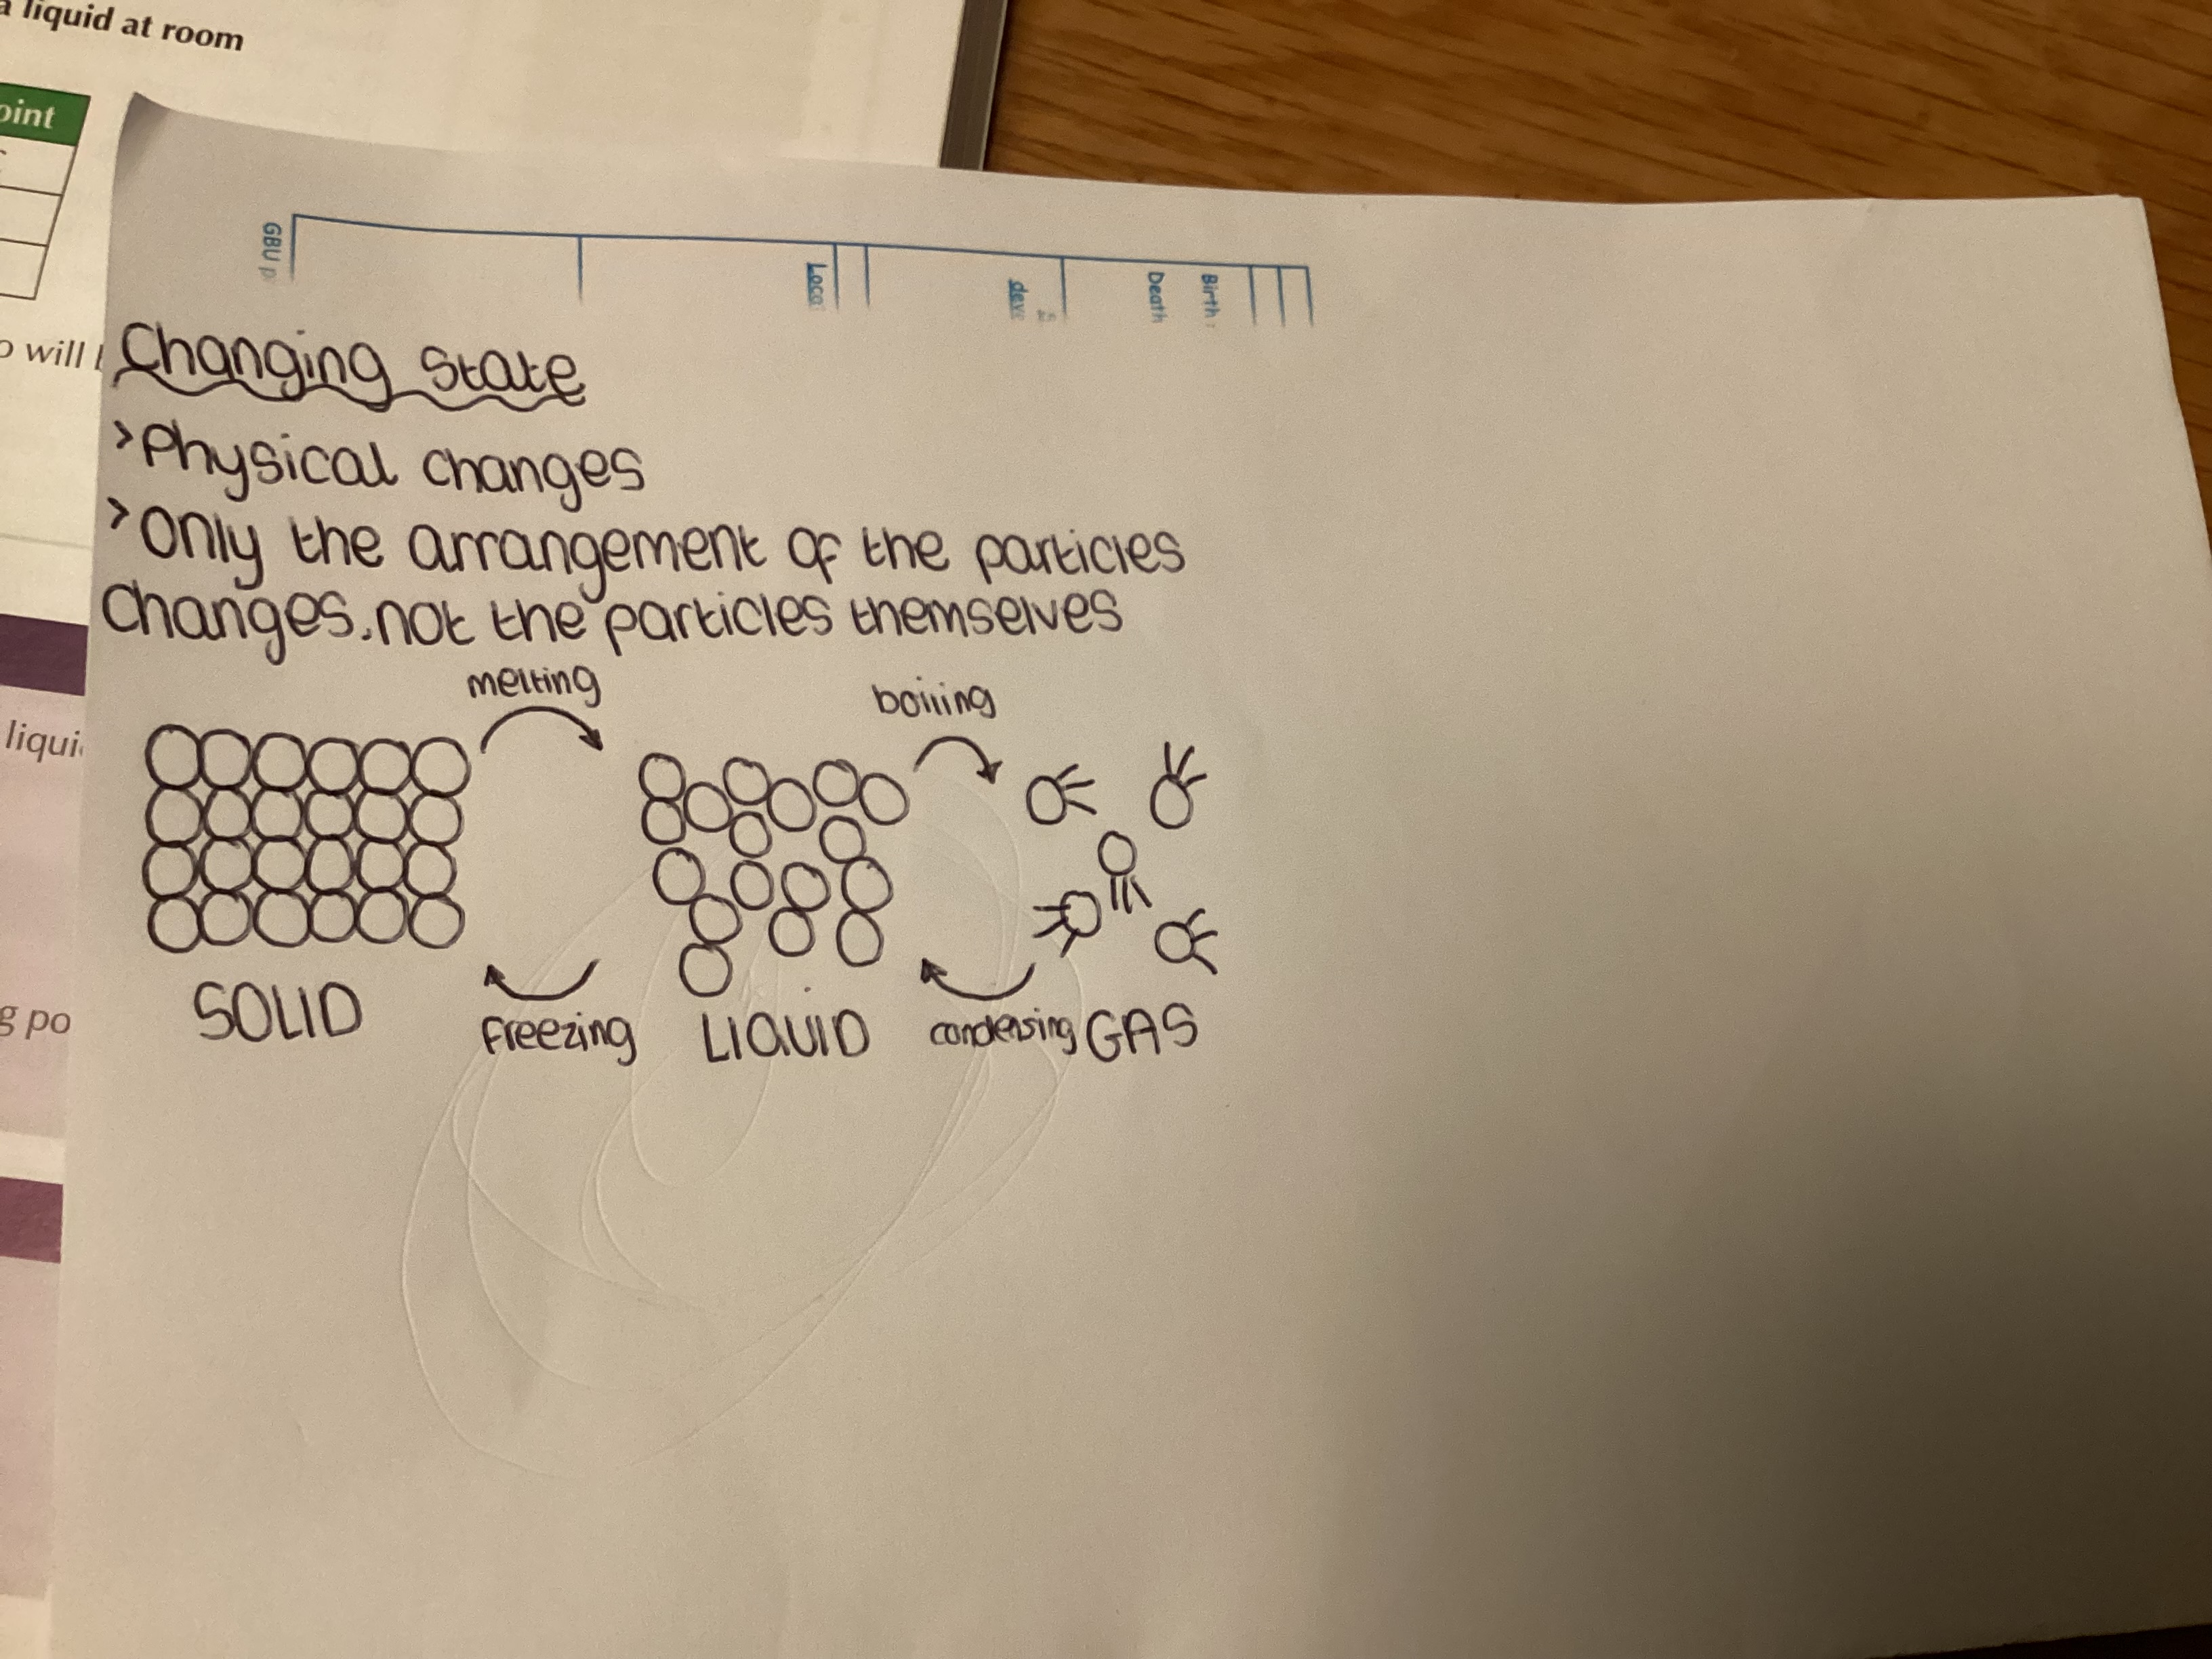 a liquid at room
oint
o will
GBU
Loca
deve
Death
Birth:
Changing state
>Physical changes
>Only the arrangement of the particles
changes.not the particles themselves
melting
boiling
liqui
SOLID
freezing
LIQUID
condensing
GAS
g po